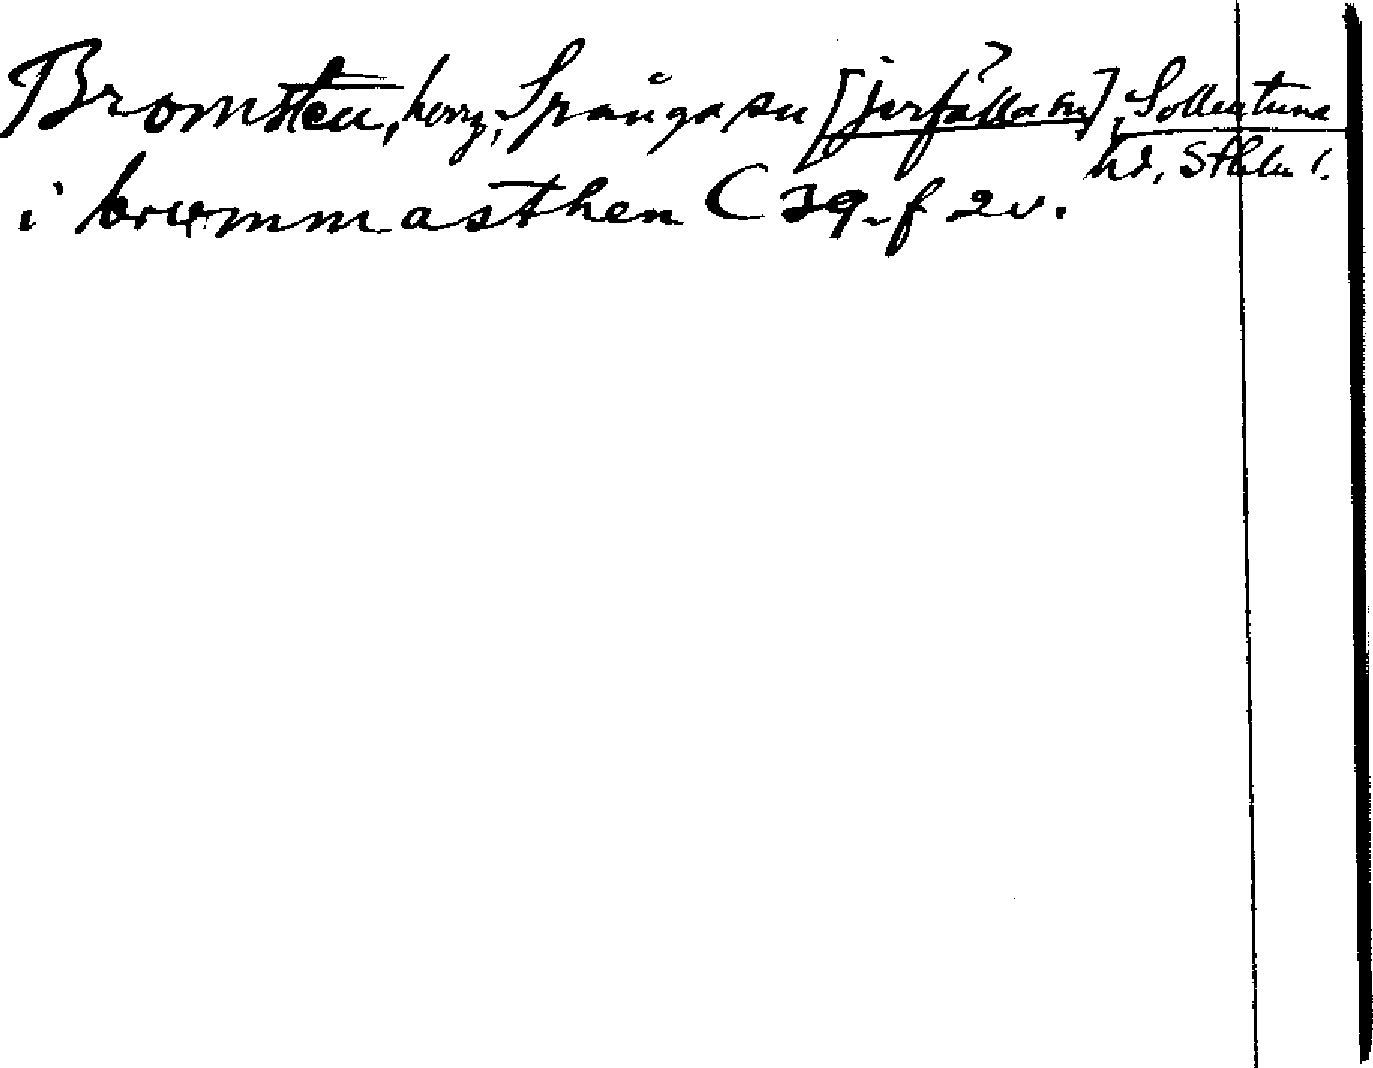 Bromsten, herrg, Spånga sn [Järfälla sn], Sollentuna
hd, Sthlm l.
i broммasthen C 39 f 2v.